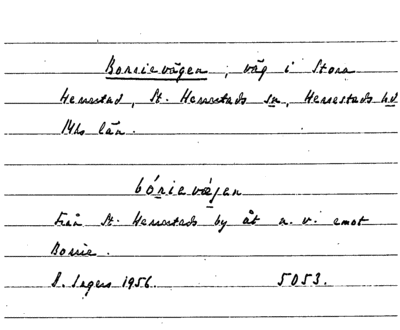 Borrievägen, väg i Stora
Herrestad, St. Herrestads sn, Herrestads hd
Mhs län.
bórievägen
Från St. Herrestads by åt n. v. emot
Borrie.
S. Ingers 1956. 5053.